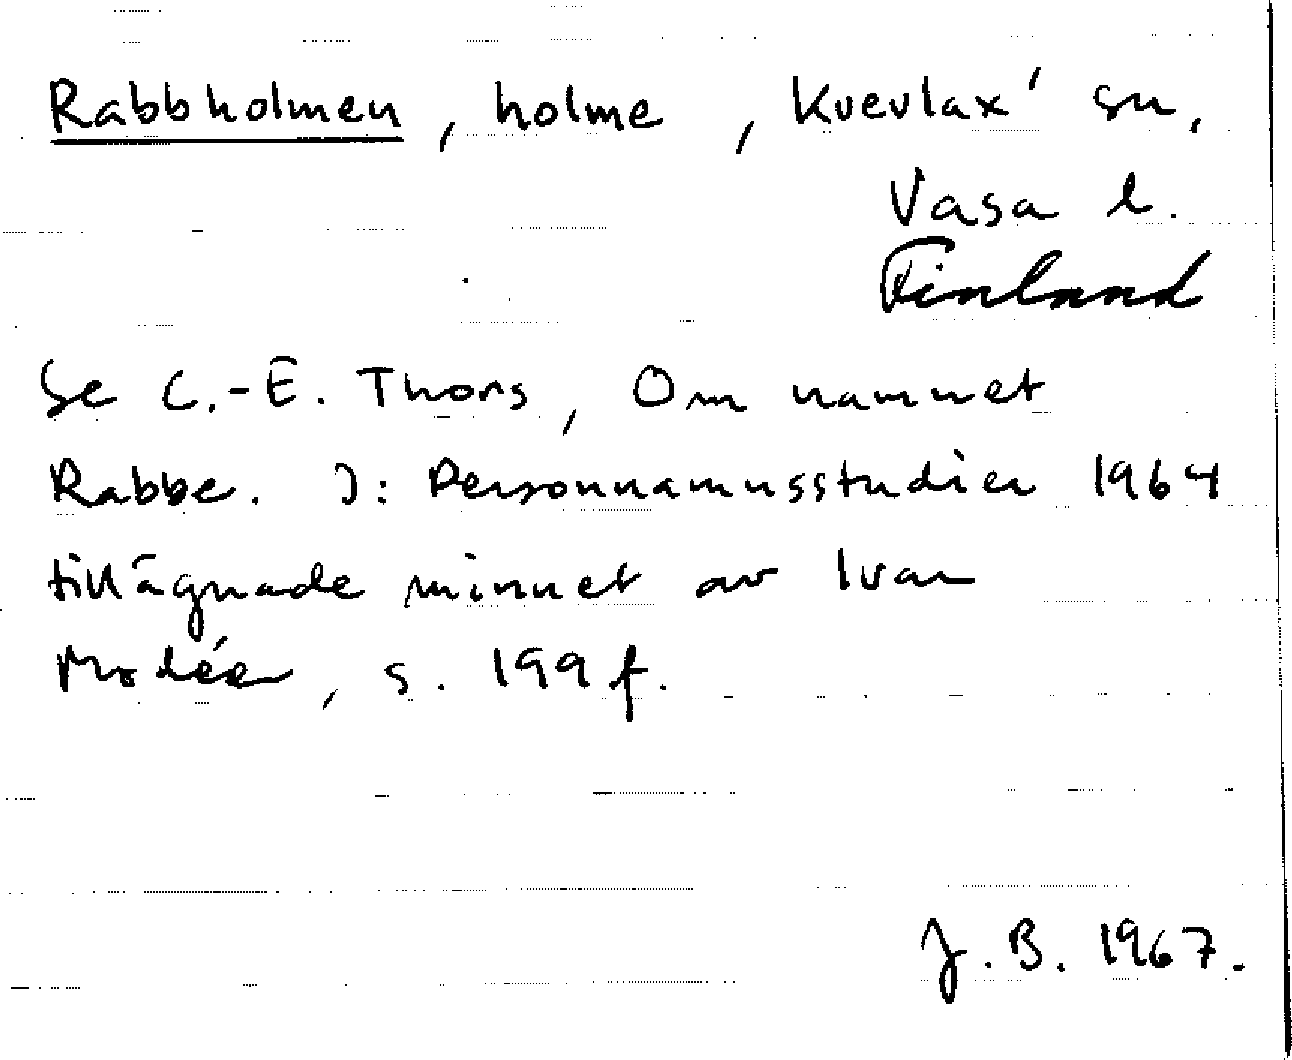 Rabbholmen, holme, Kvevlax' sn,
Vasa l.
Finland
Se C.-E. Thors, Om namnet
Rabbe. I: Personnamnsstudier 1964
tillägnade minnet av Ivar
Modéer, s. 199 f.
J.B. 1967.